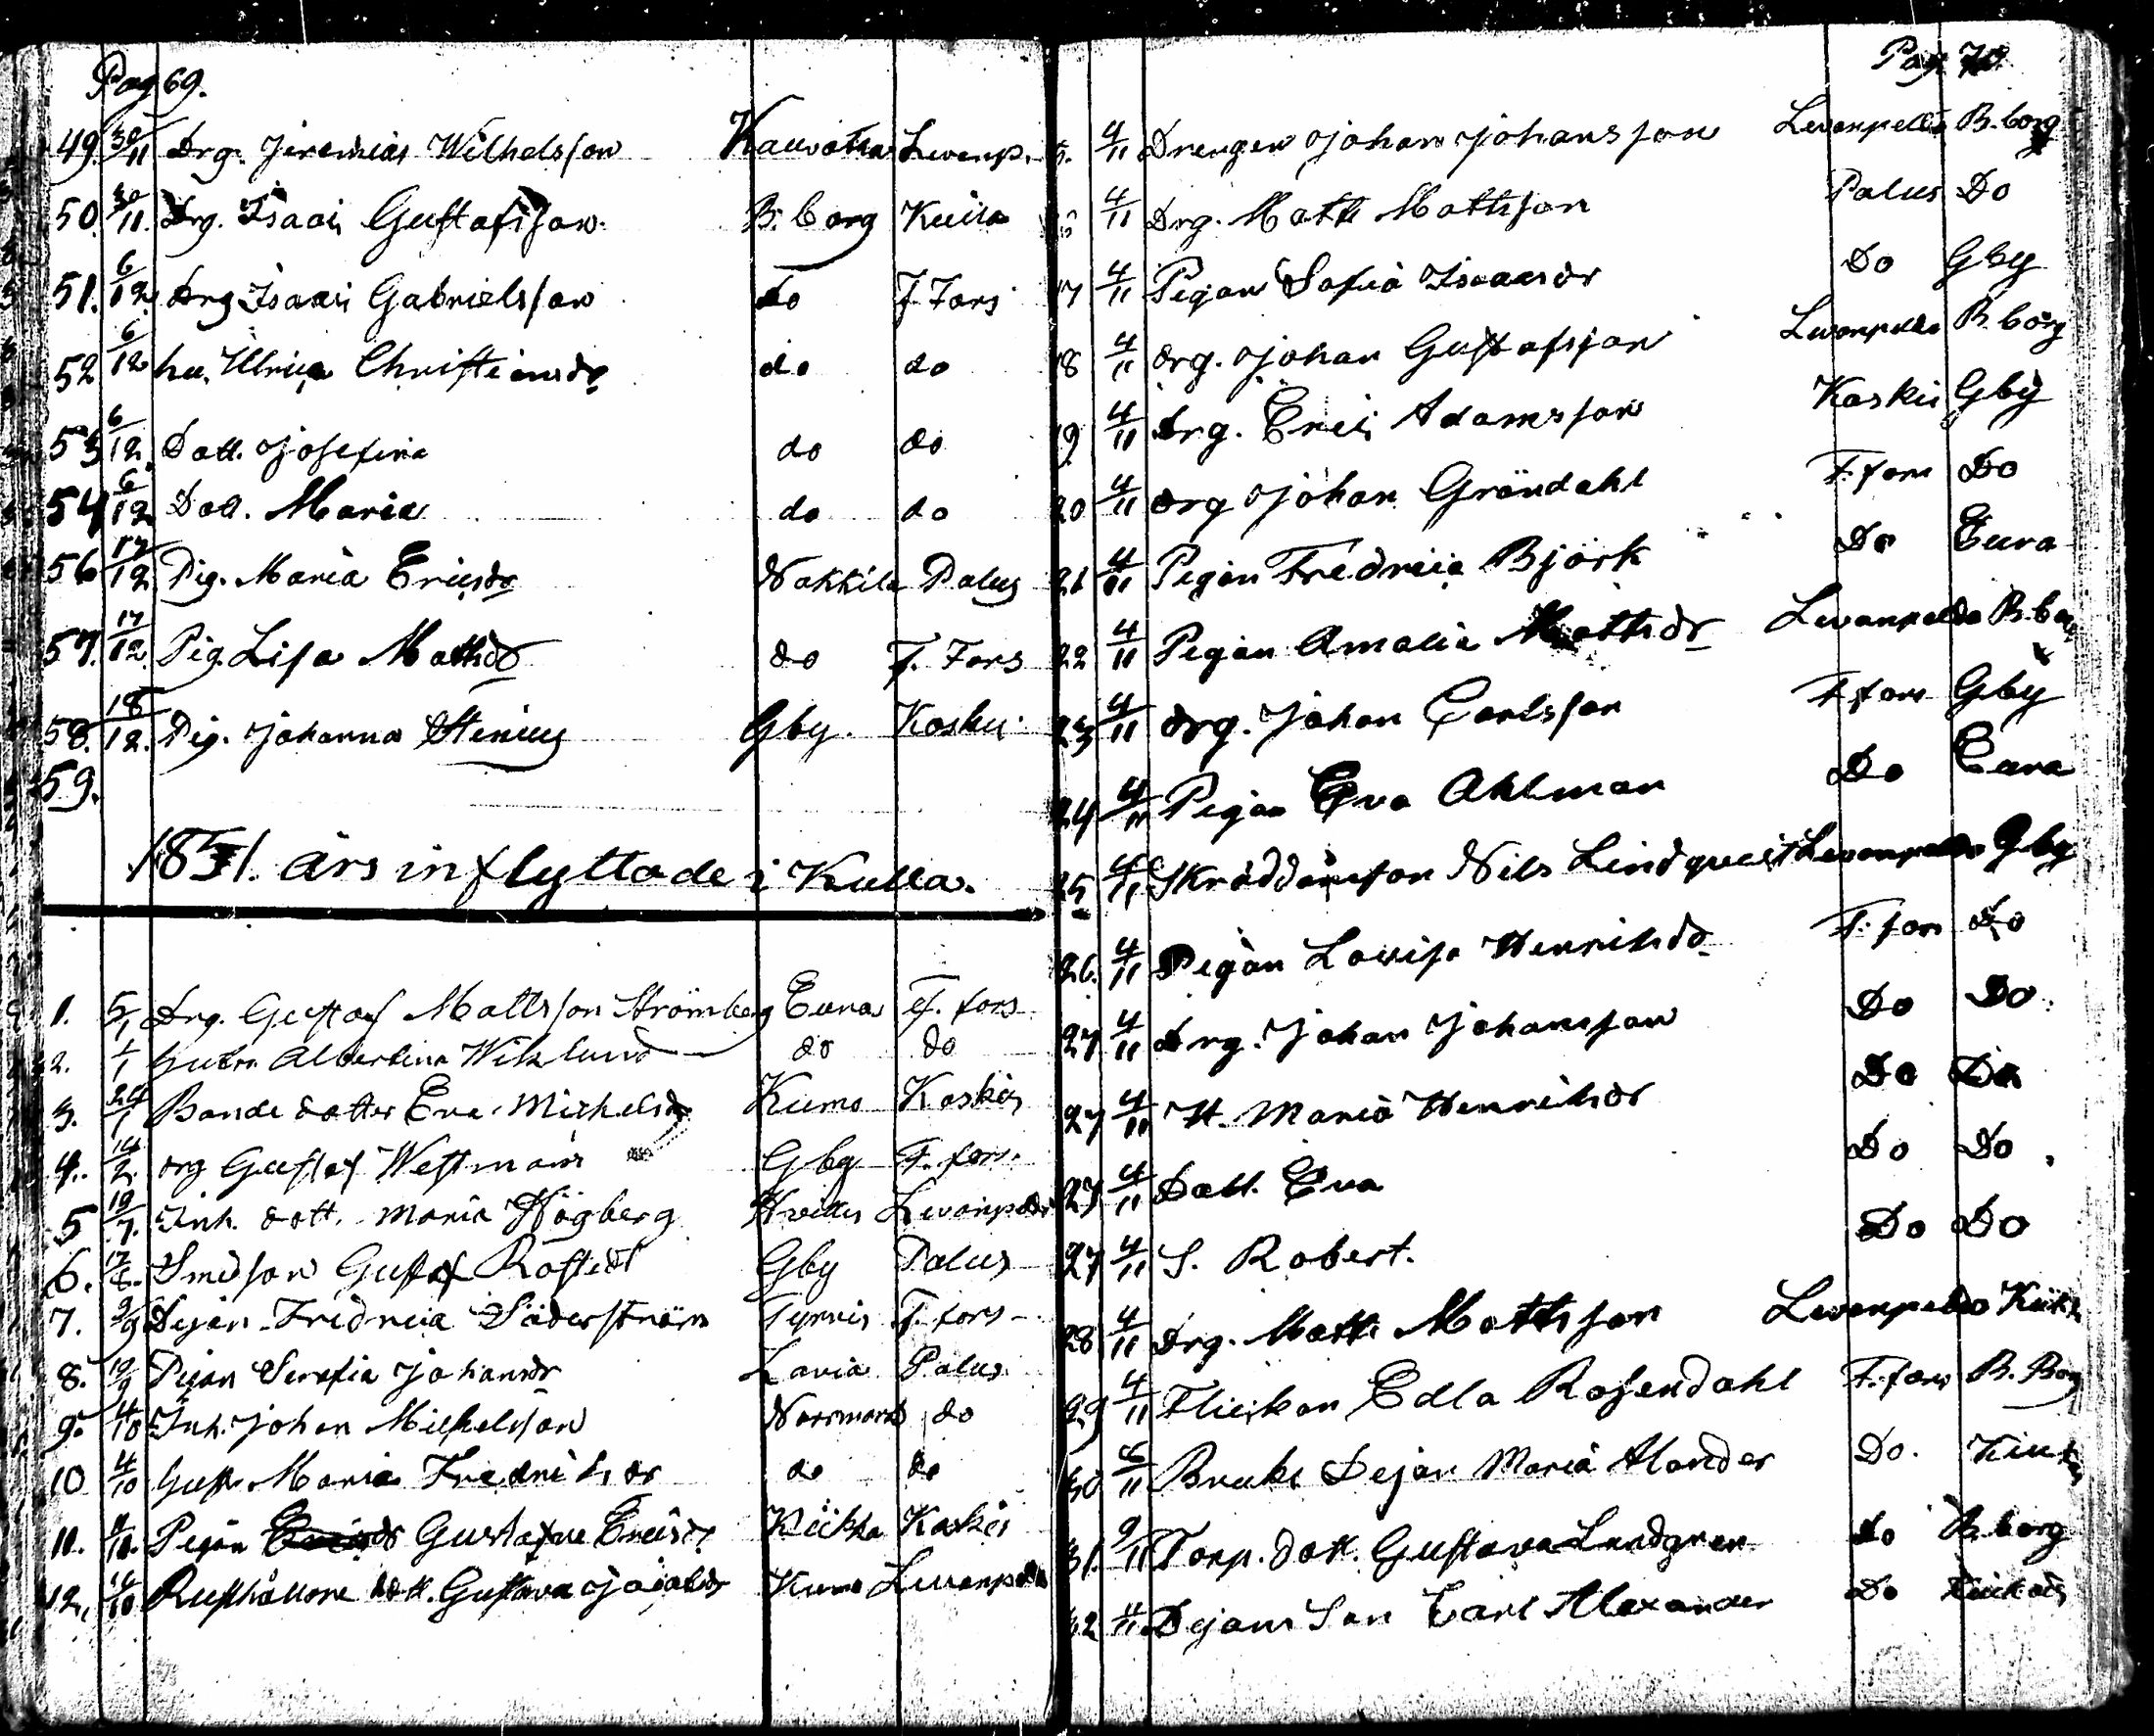 Pag 69.
49. 30/11 Drg. Jeremias Wilhelsson Kauvatsa Levanp.
50. 30/11. Drg. Isaac Gustafsson B:borg
51. 6/12. Drg Isaac Gabrielsson do F. Fors
52 6/12 hu. Ulrica Christiansdr do do
53 6/12. Dott. Josefina do do
54 6/12 Dott. Maria do do
56 17/12 Pig. Maria Ericsdr Nakkila Palus
57. 17/12. Pig. Lisa Mattsdr do F. Fors
58. 18/12. Pig. Johanna Stenius Gby. Koskis
59.
1851. års inflyttade i Kulla.
1. 5/1 Drg. Gustaf Mattsson Strömberg Eura F. fors
2. Hustru Albertina Wiklund do do
3. Bonde dotter Eva Michelsdr Kumo Koskis
4. 14/2. drg Gustaf Westman Gby F. fors.
5 19/7. Inh. dott. Maria Högberg Hvittis Levanpelto
6. Smedson Gustaf Rostedt Gby Palus
7. 9/9 Dejan Fredrica Söderström Tyrvis F. fors
8. 19/9 Pigan Serafia Johansdr Lavia Palus
9. 4/10 Inh. Johan Michelsson Norrmark do
10 4/10 Hustr Maria Fredriksdr do do
11. Pigan Gustafva Ericsdr Kiikka Koskis
12. Rusthållare dott. Gustava Jacobsdr Kumo Levanpelto
Pag. 70
5. 4/11 Drengen Johan Johansson Levanpelto B.borg
4/11 Drg. Matts Mattsson Palus Do
17 4/11 Pigan Sofia Isaacsdr Do Gby
18 4/11 drg. Johan Gustafsson Levanpelto B.borg
19 4/11 Drg. Eric Adamsson Koskis Gby
20 4/11 drg Johan Gröndahl F. fors Do
21 4/11 Pigan Fredrica Björk Do Eura
22 4/11 Pigan Amalia Mattsdr Levanpelto B.borg
23 4/11 drg. Johan Carlsson F. fors Gby
24 4/11 Pigan Eva Ahlman Do Eura
25 4/11 Skräddareson Nils Lindqueist Levanpelto Gby
26. 4/11 Pigan Lovisa Henriksdr F. fors Do
27 4/11 Drg. Johan Johansson Do Do
27 4/11 H. Maria Henriksdr Do Do
27 4/11 Dott. Eva Do Do
27 4/11 S. Robert. Do Do
28 4/11 Drg. Matts Mattsson Levanpelto
29 4/11 Flickan Edla Rosendahl F. fors B. Borg
30 Bruks Dejan Maria Alander Do.
31. 9/11 Torp. dott. Gustava Lundgren do B.borg
32 Dejans Son Carl Alexander Do